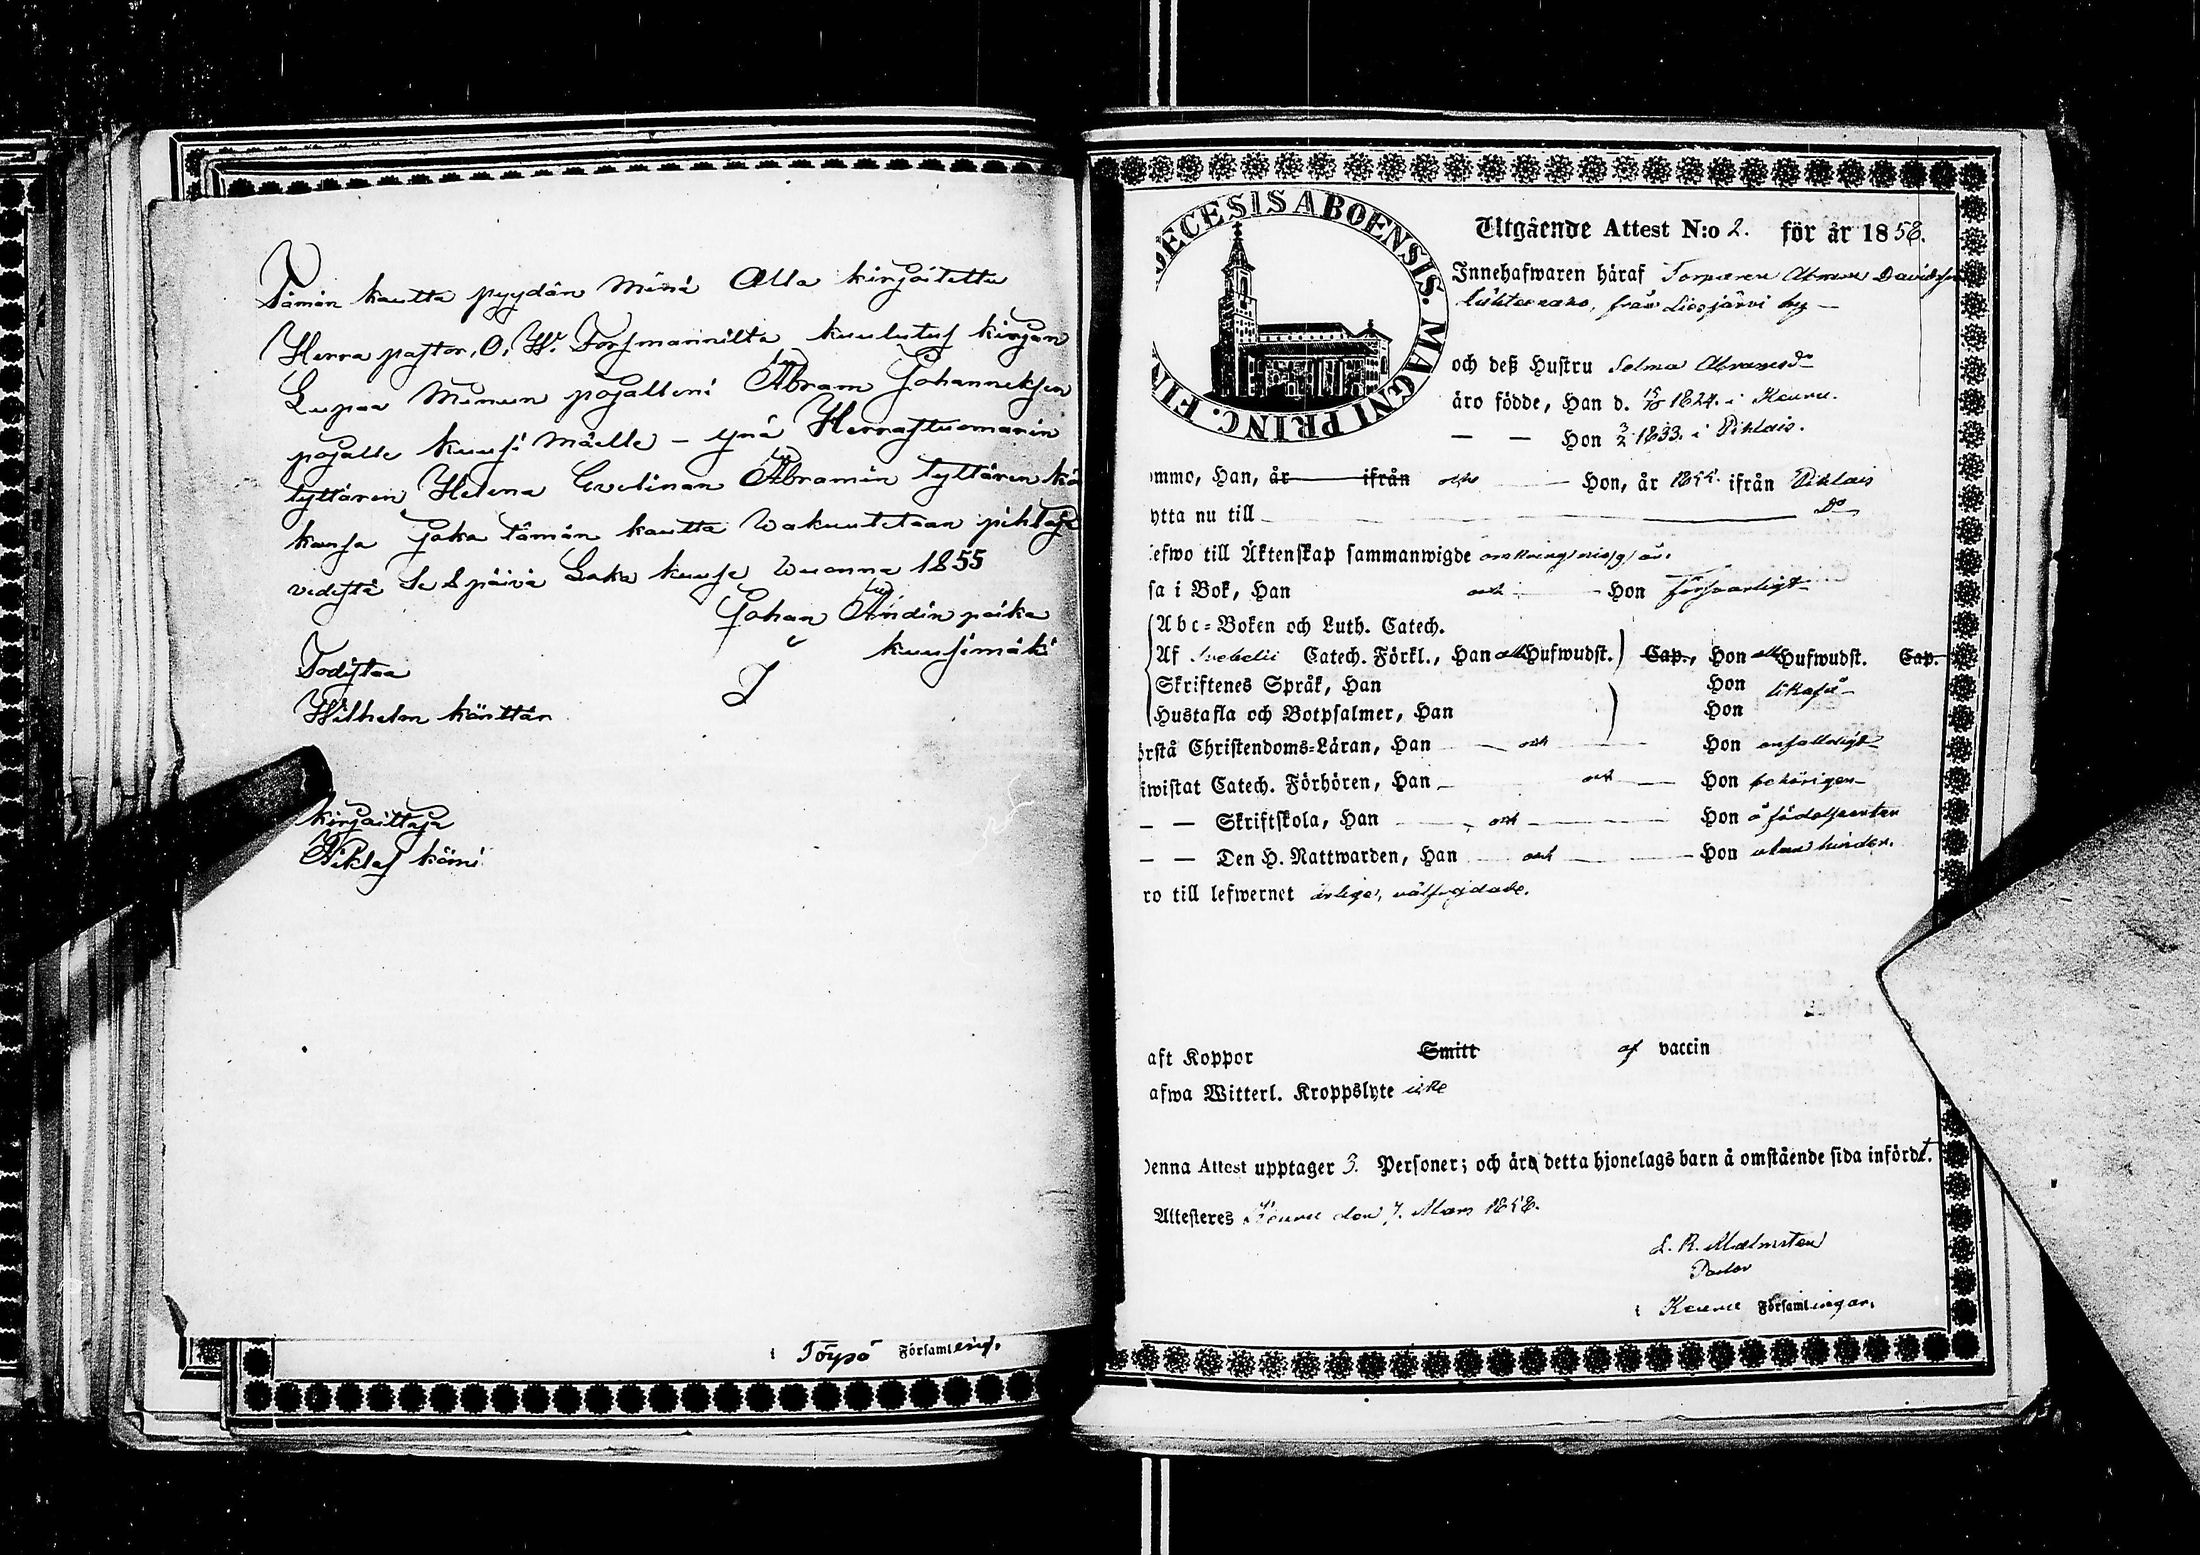 Tämän kautta pyydän Minä Alla kirjoitettu
Herra pastor, O, W. Forsmannilta kuulutus kirjan
Lupaa Minun pojalleni Abram Johanneksen
pojalle kuusi Mäelle – Ynä Herrastuomarin
tyttären, Helena Evelinan Abramin tyttären
kansa Joka tämän kautta Wakuutetaan
vedestä Se 8 päivä Loka kuuse Wuonna 1855
Johan Andin poika
kuusimäki
Todistaa
Wilhelm
kirjoittaja
Niklas
i Töysö Församling.
DIECESIS ABOENSIS. MAGNI PRINC. FIN
Utgående Attest N:o 2. för år 1858.
Innehafwaren häraf Torparen Abram Davidsson
från Liesjärvi by –
och deß Hustru Selma Abramsdr
äro födde, Han d. 15/10 1824. i Keuru.
— — Hon 3/2 1833. i Pihlais.
ommo, Han, år ifrån och Hon, år 1855. ifrån Pihlais
ytta nu till Do
lefwo till Äktenskap sammanwigde
sa i Bok, Han och Hon försvarligt
Abc-Boken och Luth. Catech.
Af Svebelii Catech. Förkl., Han Hufwudst.) Cap., Hon Hufwudst. Cap.
Skriftenes Språk, Han Hon likaså
Hustafla och Botpsalmer, Han Hon
örstå Christendoms-Läran, Han och Hon enfaldigt
iwistat Catech. Förhören, Han och Hon behörigen
— — Skriftskola, Han och Hon å födelseorten
— — Den H. Nattwarden, Han och Hon utan hinder.
ro till lefwernet ärlige, välfrejdade.
aft Koppor Smitt af vaccin
afwa Witterl. Kroppslyte icke
Denna Attest upptager 3. Personer; och äro detta hjonelags barn å omstående sida infördt.
Attesteres Keuru den 7. Mars 1858.
L. R. Malmsten
Pastor
i Keuru Församlingar.